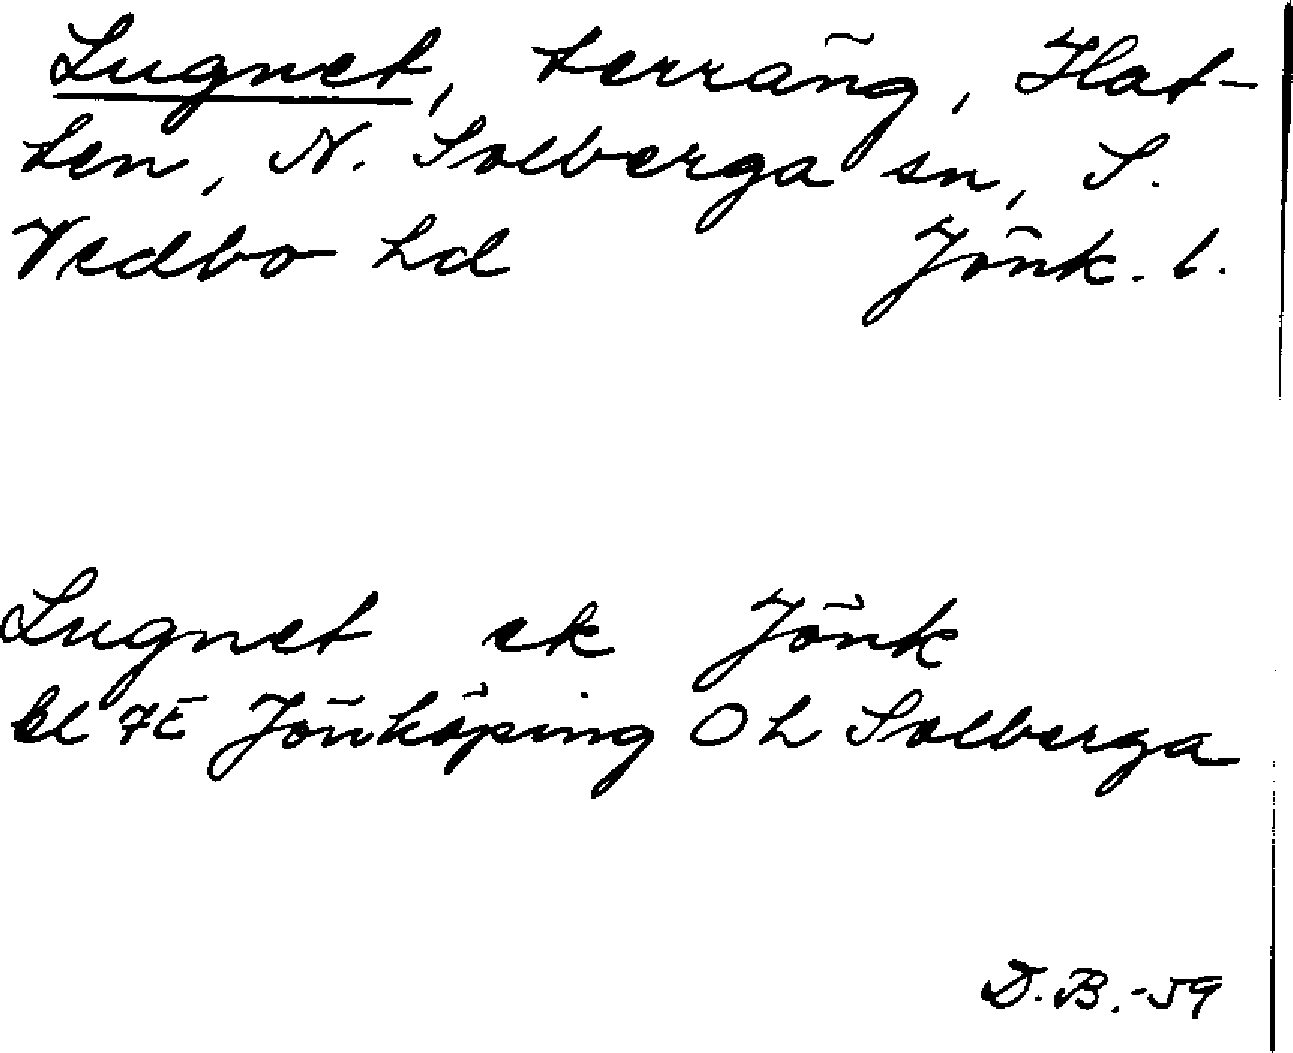 Lugnet, terräng, Hat-
ten, N. Solberga sn, S.
Vedbo hd Jönk. l.
Lugnet ek Jönk
bl 7E Jönköping Oh Solberga
D.B.-59